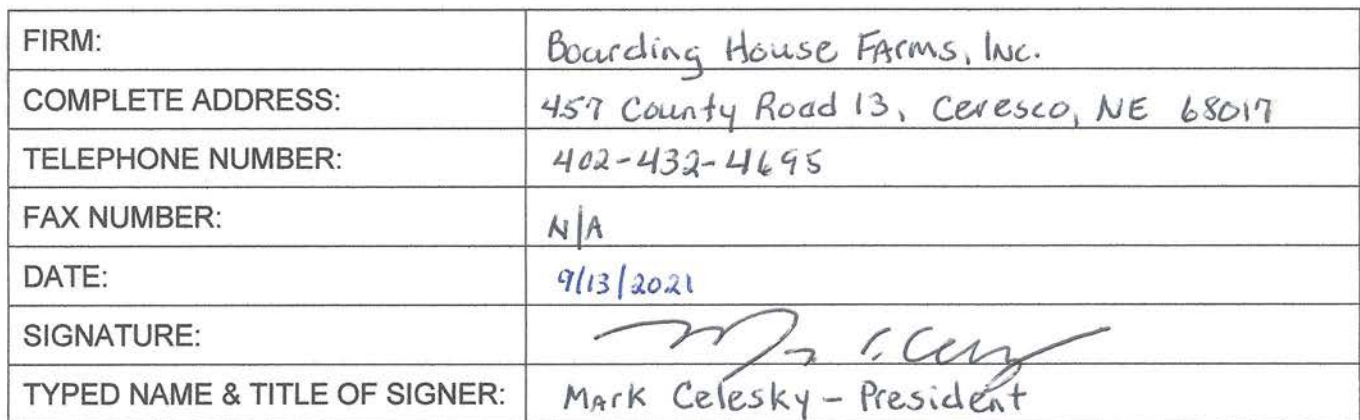 FIRM: Boarding House Farms, Inc.
COMPLETE ADDRESS: 457 County Road 13, Ceresco, NE 68017
TELEPHONE NUMBER: 402-432-4695
FAX NUMBER: N/A
DATE: 9/13/2021
SIGNATURE:
TYPED NAME & TITLE OF SIGNER: Mark Celesky - President